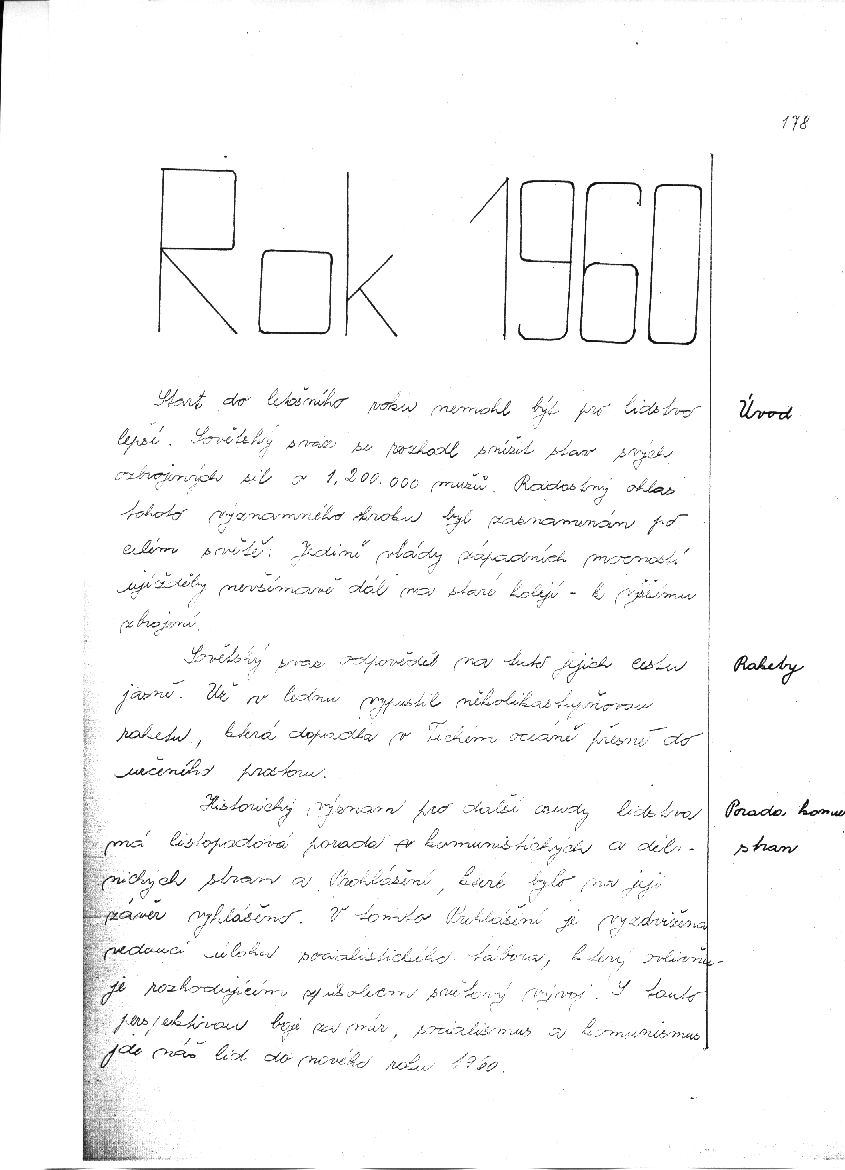 178
Rok 1960
Start do letošního roku nemohl být pro lidstvo
Úvod
lepší. Sovětský svaz se rozhodl snížit stav svých
ozbrojených sil o 1,200.000 mužů. Radostný ohlas
tohoto významného kroku byl zaznamenán po
celém světě. Jedině vlády západních mocností
ujížděly nevšímavě dál na staré koleji - k vyššímu
zbrojení.
Sovětský svaz odpověděl na tuto jejich cestu
Rakety
jasně. Už v lednu vypustil několikastupňovou
raketu, která dopadla v Tichém oceáně přesně do
určeného prostoru.
Historický význam pro další osudy lidstva
Porada komu
má listopadová porada komunistických a děl-
stran
nických stran a Prohlášení, které bylo na její
závěr vyhlášeno. V tomto Prohlášení je vyzdvižena
vedoucí úloha socialistického tábora, který ovlivňu-
je rozhodujícím způsobem světový vývoj. S touto
perspektivou boje za mír, socialismus a komunismus
jde náš lid do nového roku 1960.